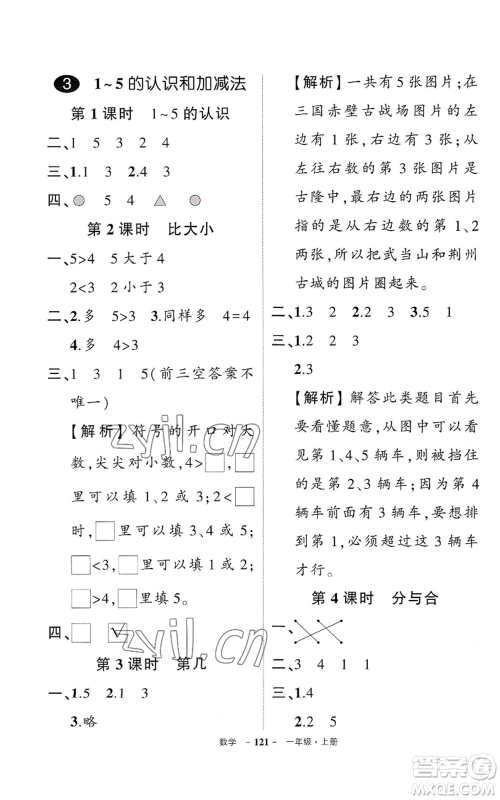 3 1~5的认识和加减法
第1课时 1~5的认识
二、1 5 3 2 4
三、1.1 3 2.4 3
四、 5 4
第2课时 比大小
一、5>4 5大于4
2<3 2小于3
二、2.多 5>3 3.同样多 4=4
4.多 4>3
三、1 3 1 5(前三空答案不
唯一)
【解析】符号的开口对大
数,尖尖对小数,4>□,□
里可以填1、2或3;2<□
时,□里可以填3、4或5;
□<3,□里可以填1或2;
□>4,□里可以填5。
四、□ ☑
第3课时 第几
一、1.5 2.1 3
3.略
【解析】一共有5张图片;在
三国赤壁古战场图片的左
边有1张,右边有3张;从
左往右数的第3张图片是
古隆中,最右边的两张图片
指的是从右边数的第1、2
两张,所以把武当山和荆州
古城的图片圈起来。
二、1.3 2.2 3.5 1
三、1.2 3
2.3
【解析】解答此类题目首先
要看懂题意,从图中可以看
到第1、4、5辆车,被挡住
的是第2、3辆车;因为第4
辆车前面有3辆车,要想排
到第1,必须超过这3辆车
才行。
第4课时 分与合
一、
二、3 4 1 1
三、1.4
2.2 5
数学 - 121 - 一年级·上册
zyjl.cn
zyjl.cn